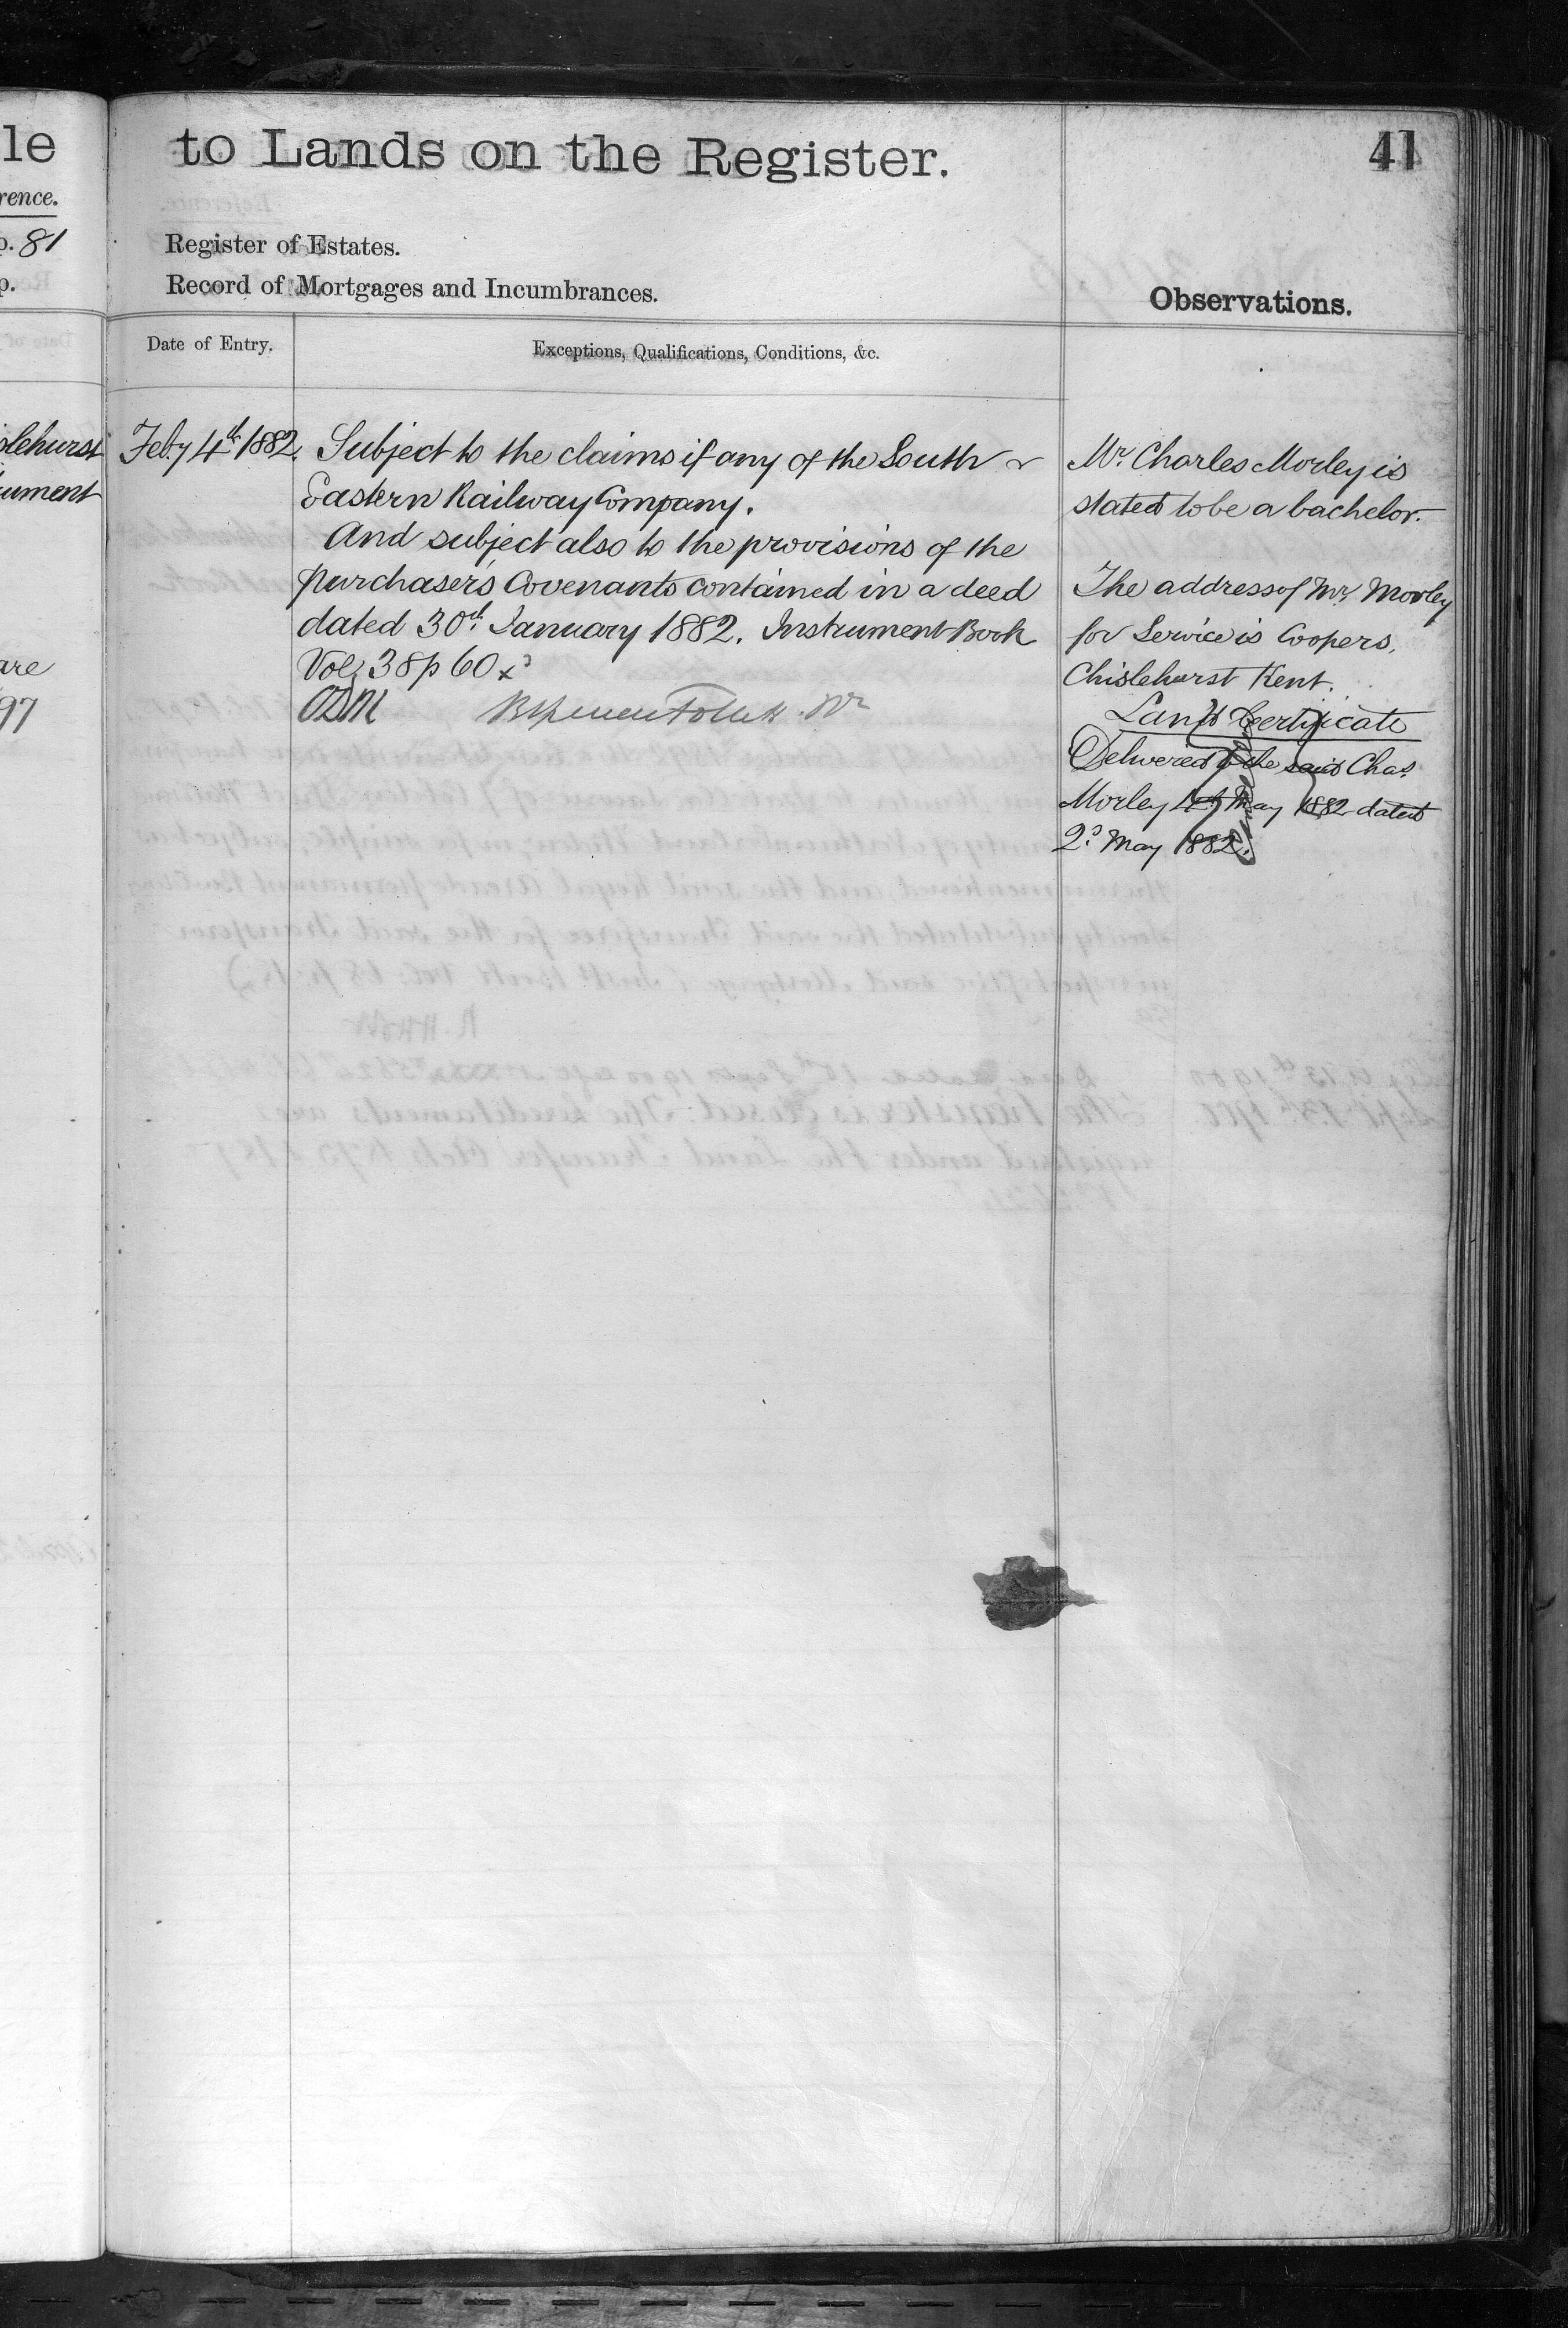 le
rence.
p. 81
p.
slehurst
ument
are
97
to Lands on the Register.
41
Register of Estates.
Record of Mortgages and Incumbrances.
Observations.
Date of Entry.
Exceptions, Qualifications, Conditions, &c.
Feby 4th 1882.
Subject to the claims if any of the South
Eastern Railway Company.
And subject also to the provisions of the
purchaser's Covenants contained in a deed
dated 30th January 1882. Instrument Book
Vol. 38 p 60
Mr. Charles Morley is
stated to be a bachelor.
The address of Mr. Morley
for Service is Coopers,
Chislehurst Kent.
Land Certificate
Delivered to the said Chas.
Morley May 1882 dated
2d May 1882.